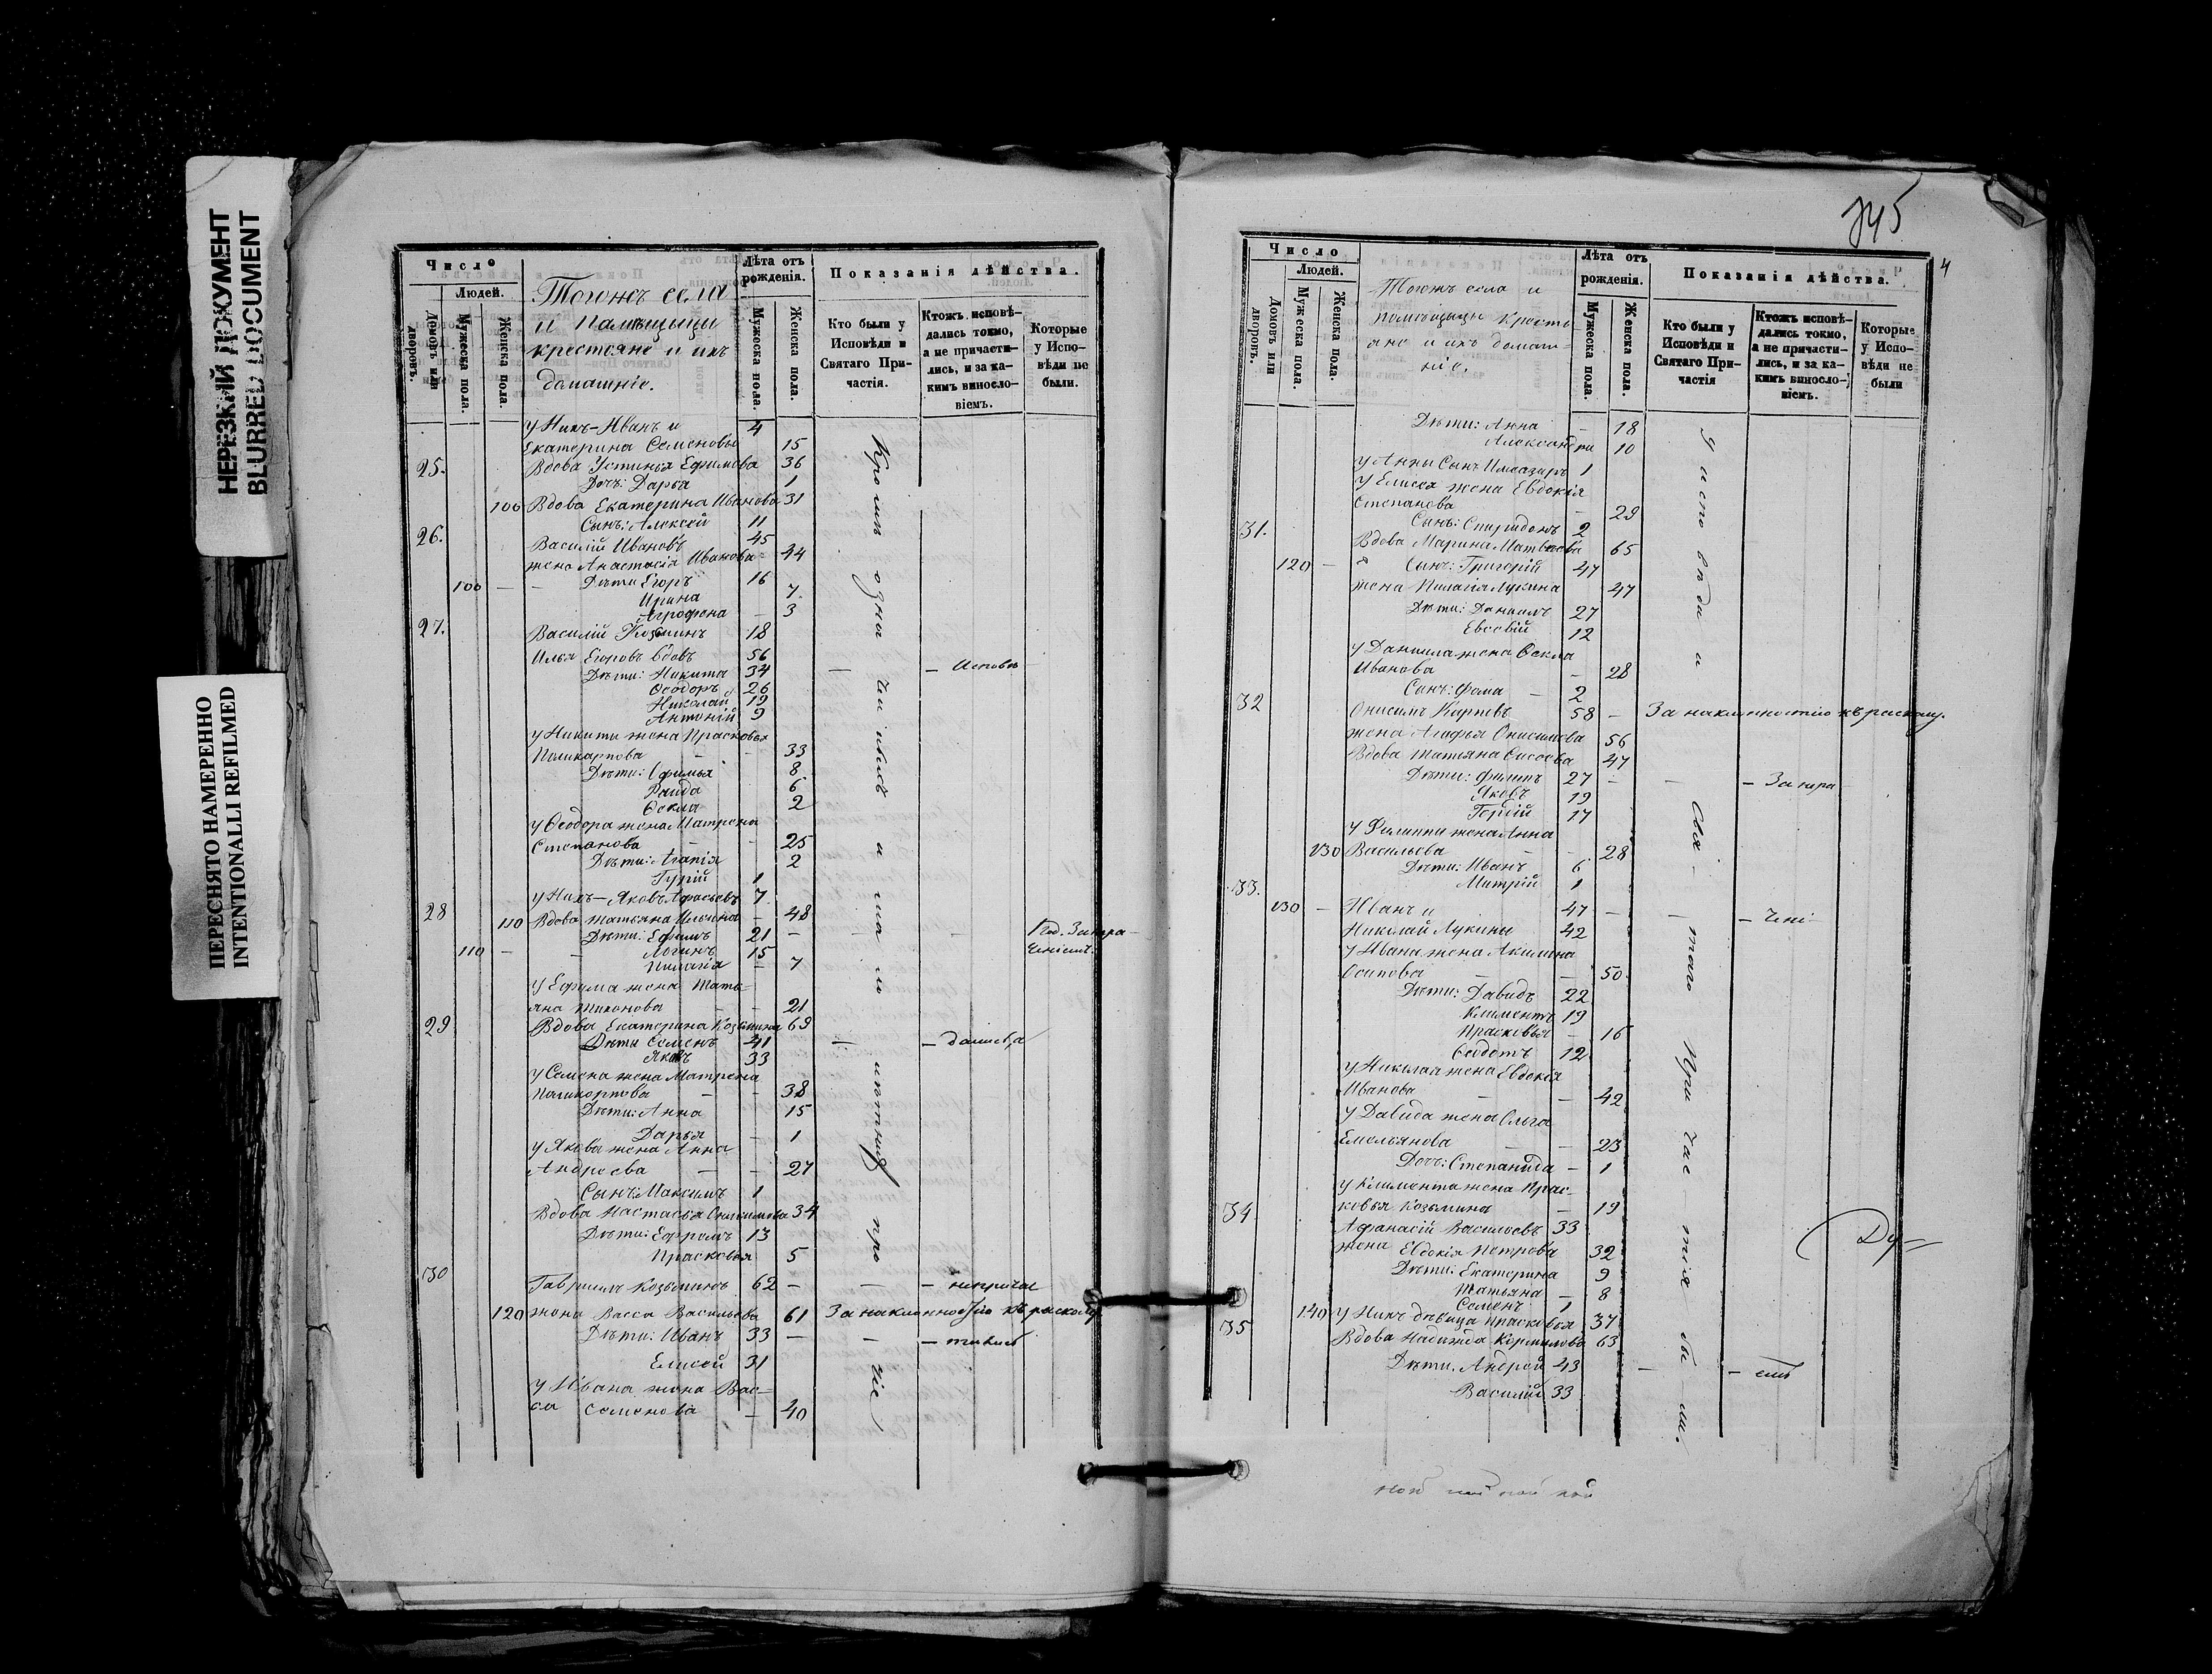 НЕРЕЗКИЙ ДОКУМЕНТ
BLURRED DOCUMENT
ПЕРЕСНЯТО НАМЕРЕННО
INTENTIONALLI REFILMED
Число
Людей.
Домовъ или дворовъ.
Мужеска пола.
Женска пола.
Тогожъ села
и помѣщицы
крестьяне и ихъ
домашніе.
Лѣта отъ рожденія.
Мужеска пола.
Женска пола.
Показанія дѣйства.
Кто были у Исповѣди и Святаго Причастія.
Ктожъ исповѣдались токмо, а не причастились, и за какимъ винословіемъ.
Которые у Исповѣди не были.
у Нихъ-Иванъ и 4
Екатерина Семеновы 15
25. Вдова Устинья Ефимова 36
Дочь: Дарья 1
100 Вдова Екатерина Иванова 31
Сынъ: Алексей 11
26. Василій Ивановъ 45
жена Анастасія Иванова 44
100 — — Дѣти Егоръ 16
Ирина 7
Агрофена — 3
27. Василій Козьминъ 18
Илья Егоровъ вдовъ 56
Дѣти: Никита 34 — — Исповѣ
Ѳеодоръ 26
Николай 19
Антоній 9
у Никиты жена Прасковья
Поликарпова — — 33
Дѣти: Ефимья 8
Раида 6
Ѳекла 2
у Ѳеодора жена Матрена
Степанова — — 25
Дѣти: Агапія 2
Гурій 1
у Нихъ-Яковъ 7
28 110 Вдова Татьяна Ильина — 48
Дѣти: Ефимъ 21 — — — Под. Запра-
110 — — Логинъ 15 щеніемъ
Пилагія — 7
у Ефима жена Тать-
яна Тихонова — — 21
29 Вдова Екатерина Козьмина 69
Дѣти Семенъ 41 — — дались, а
Яковъ 33
у Семена жена Матрена
Поликорпова — — 38
Дѣти: Анна 15
Дарья — 1
у Якова жена Анна
Андреева — — 27
Сынъ: Максимъ 1
Вдова Настасья Онисимова 34
Дѣти: Ефремъ 13
Прасковья 5
30 Гавриилъ Козьминъ 62 — — — неприча
120 жена Васса Васильева 61 За наклонностію къ расколу.
Дѣти: Иванъ 33 — — — тились
Елисей 31
у Ивана жена Вас-
са Семенова — 40
Кромѣ означенныхъ и малолѣтнихъ прочіе
345
4
Число
Людей.
Домовъ или дворовъ.
Мужеска пола.
Женска пола.
Тогожъ села и
помѣщицы кресть-
яне и ихъ домаш-
ніе.
Лѣта отъ рожденія.
Мужеска пола.
Женска пола.
Показанія дѣйства.
Кто были у Исповѣди и Святаго Причастія
Ктожъ исповѣдались токмо, а не причастились, и за какимъ винословіемъ.
Которые у Исповѣди не были
Дѣти: Анна — 18
Александра 10
у Анны Сынъ 1
у Елисея жена Евдокія
Степанова — 29
Сынъ: Спиридонъ 2
31. Вдова Марина Матвеева 65
120 — Сынъ: Григорій 47
жена Пилагія Лукина 47
Дѣти: Даниилъ 27
Евсевій 12
у Даниила жена Ѳекла
Иванова — 28
Сынъ: Фома — 2
32 Онисимъ Карповъ 58 — За наклонностію къ расколу.
жена Агафья Онисимова 56
Вдова Татьяна Сисоева 47
Дѣти: Филипъ 27 — — — За пра
Яковъ 19
Гордій 17
у Филипа жена Анна
130 Васильева — — 28
Дѣти: Иванъ 6
Митрій 1
33. 130 — Иванъ и 47 — — — щені
Николай Лукины 42
у Ивана жена Акилина
Осипова — — 50
Дѣти: Давидъ 22
Климентъ 19
Прасковья — 16
Ѳедотъ 12
у Николая жена Евдокія
Иванова — — 42
у Давида жена Ольга
Емельянова — — 23
Дочь: Степанида — 1
у Климента жена Прас-
ковья Козьмина — 19
34 Афанасій Васильевъ 33
жена Евдокія Петрова 32
Дѣти: Екатерина 9
Татьяна — 8
Семенъ 1
140 у Нихъ дѣвица Прасковья 37
35 Вдова Надежда Корнилова 63
Дѣти: Андрей 43 — — емъ
Василій 33
У исповѣди и Свя-таго Причас-тія бы-ли.